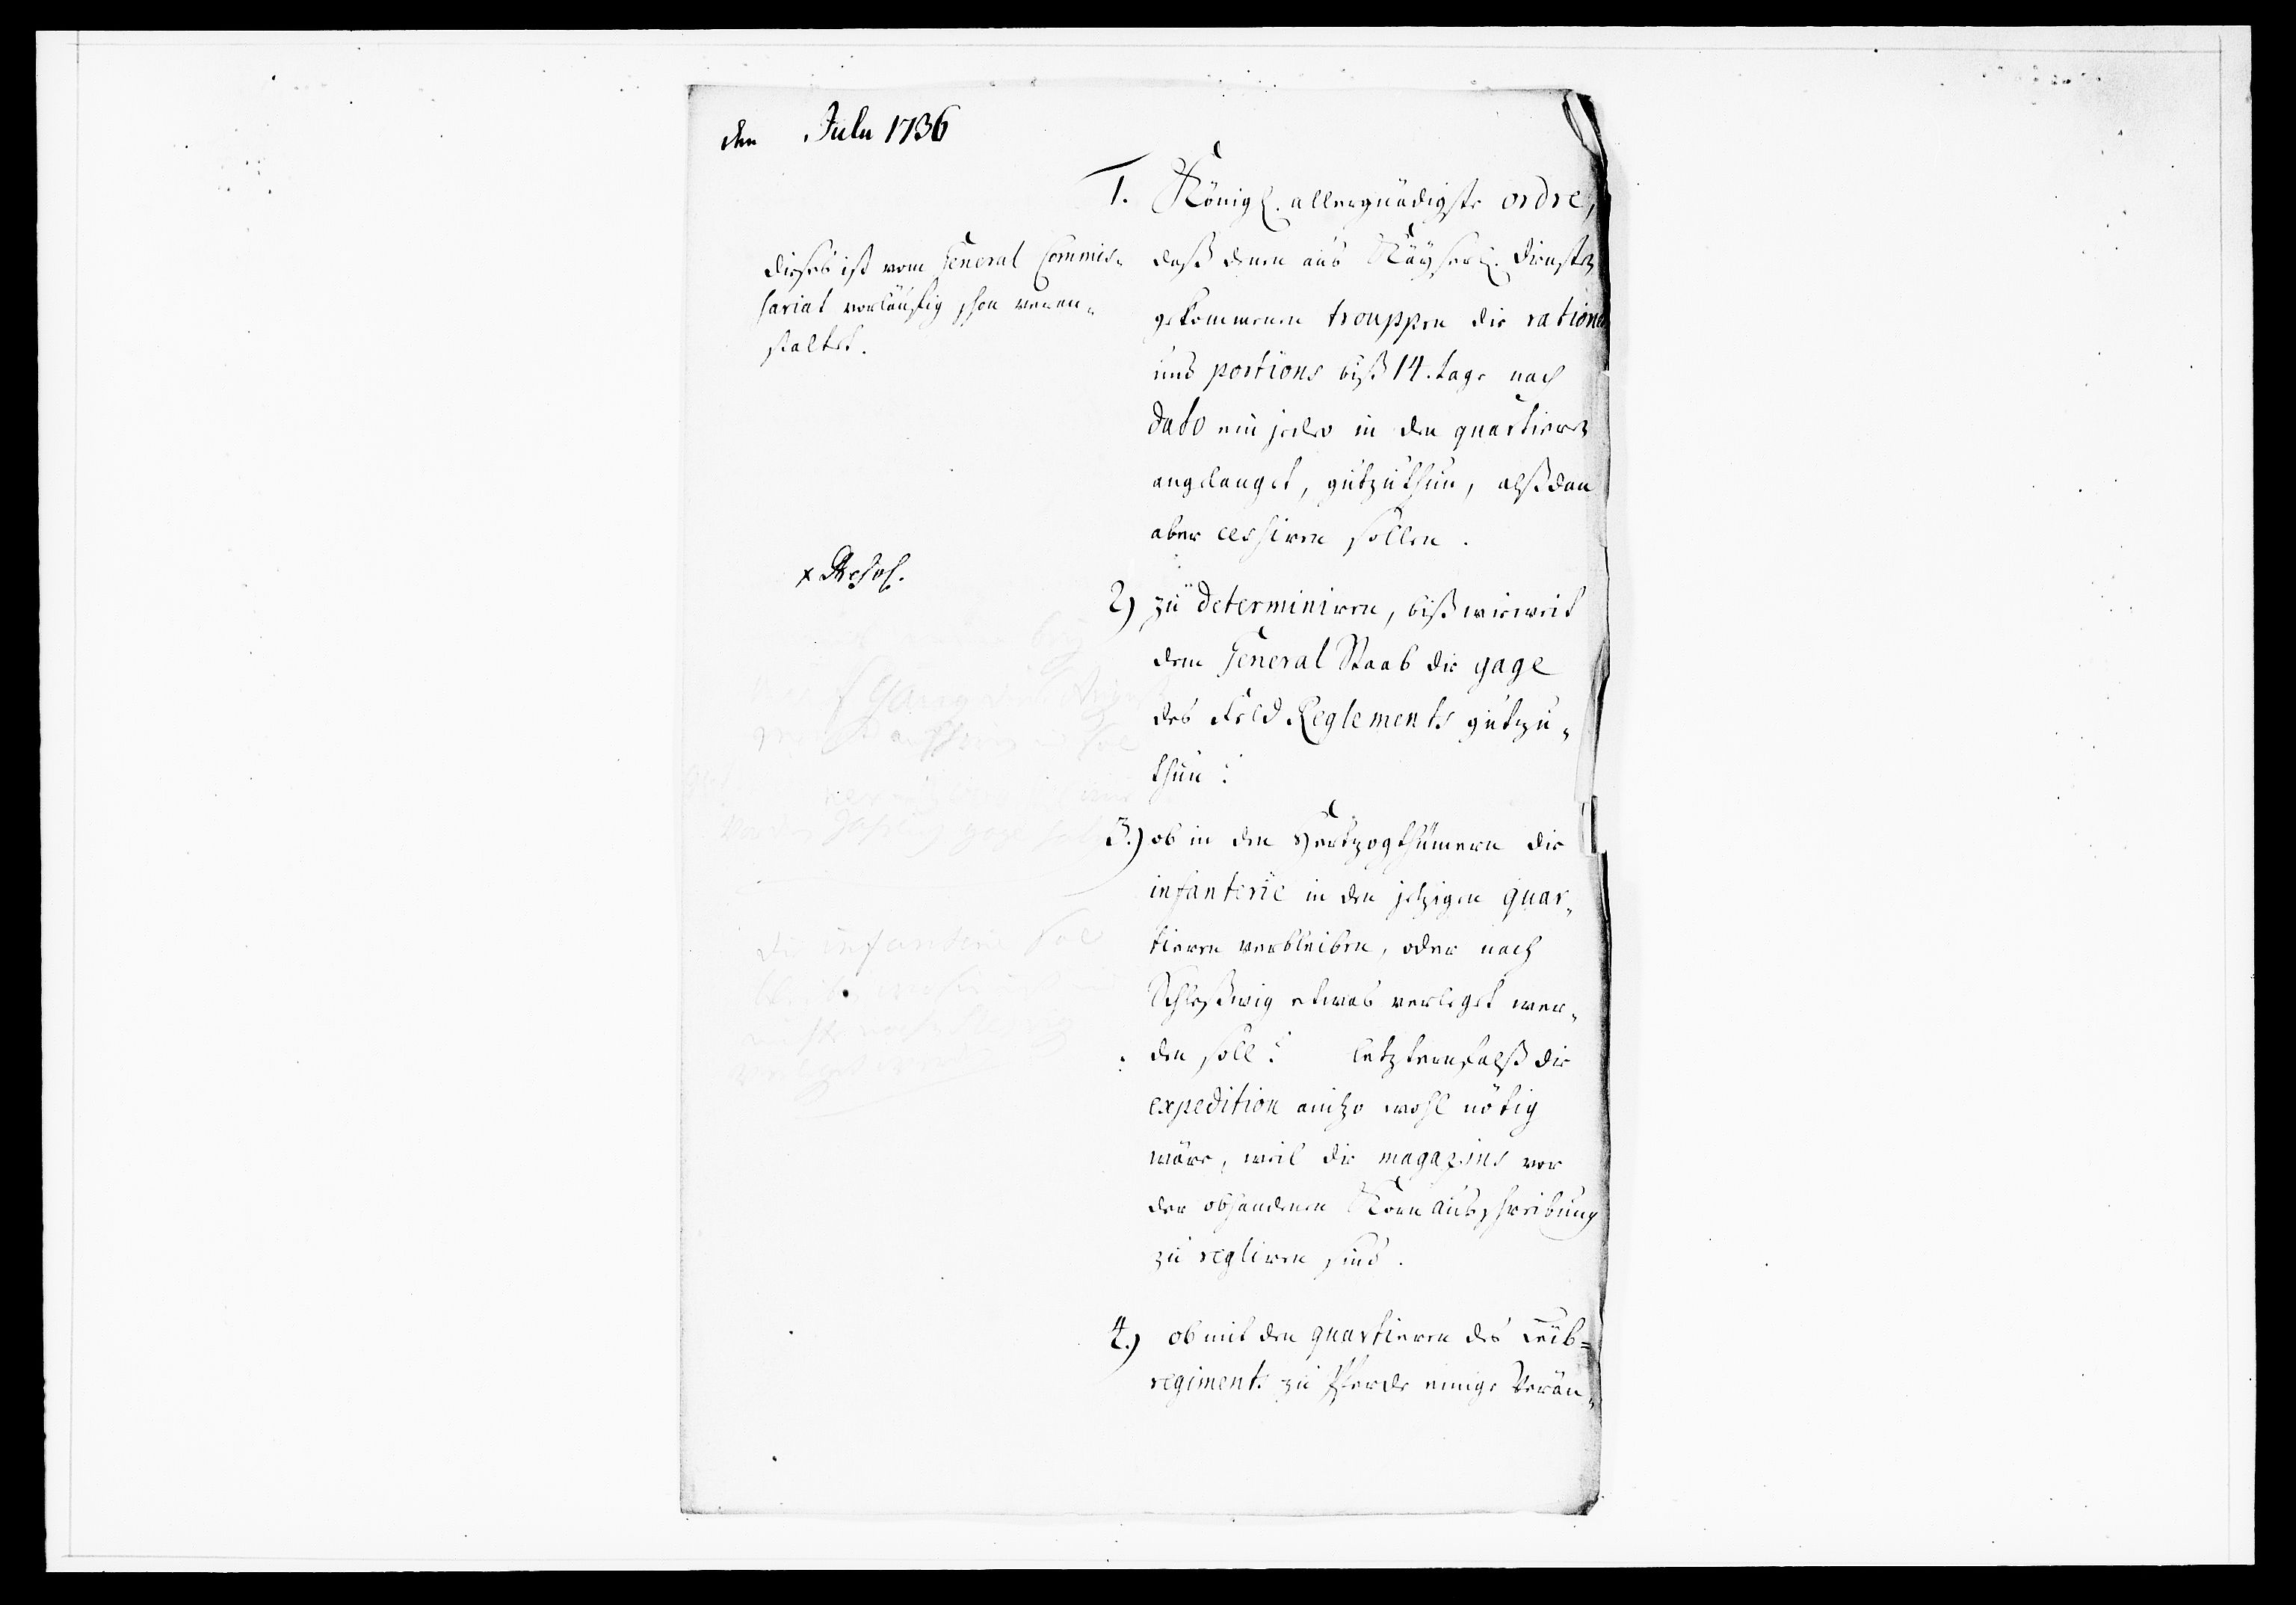 den July 1736
1. Königl. allergnädigste ordre,
daß denen aus Kayserl. Diensten
gekommenen trouppen die rations
und portions biß 14. tage nach
dato ein jedes in den quartieren
angelanget, gutzuthun, alßdan
aber cessiren sollen.
Dieses ist vom General Commis-
sariat vorläuffig schon veran-
staltet.
x Resol.
2) zu determiniren, biß wie weit
dem General Staab die gage
des Feld Reglements gutzu-
thun?
3.) ob in den Hertzogthümern die
infanterie in den jetzigen quar-
tieren verbleiben, oder nach
Schleßwig etwas verleget wer-
den soll? letzternfalß die
expedition anitzo wohl nötig
wäre, weil die magazins vor
der obhandenen Korn ausschreibung
zu regliren sind.
die infanterie sol
4.) ob mit den quartieren des Leib=
regiments zu Pferde einige Verän-